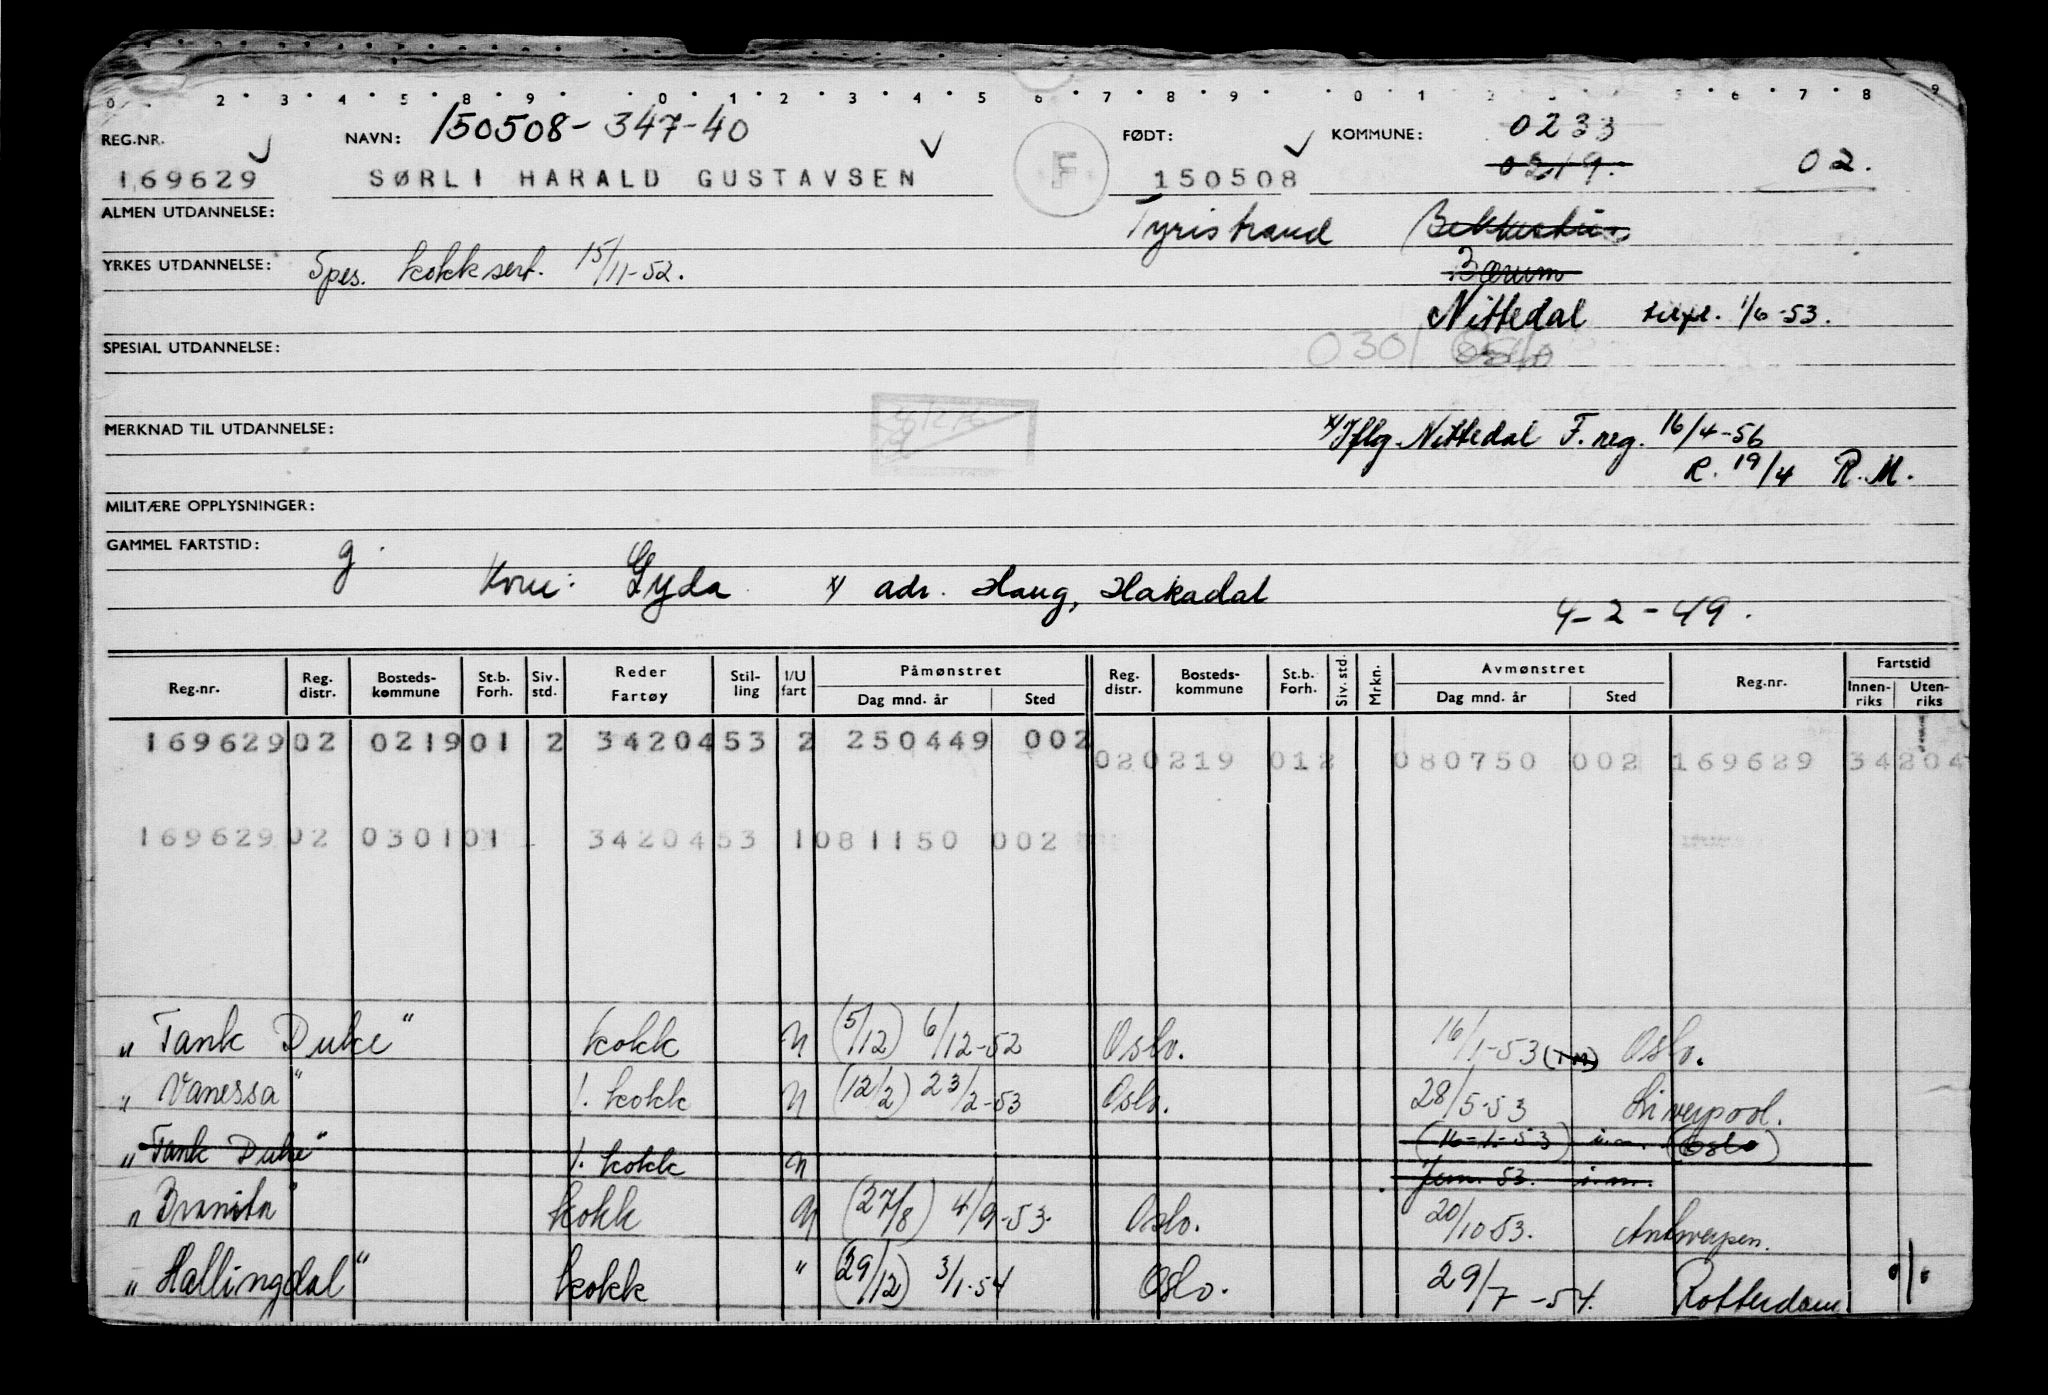 0 2 3 4 5 8 9 0 1 2 3 4 5 6 7 8 9 0 1 2 5 6 7 8 9
REG.NR. NAVN: 150508-347-40 FØDT: KOMMUNE: 0233
169629 SØRLI HARALD GUSTAVSEN F 150508 0219. 02.
ALMEN UTDANNELSE: Tyristrand
YRKES UTDANNELSE: Spes. kokksert. 15/11-52. Bærum
Nittedal 1/6-53.
SPESIAL UTDANNELSE: 0301 Oslo
MERKNAD TIL UTDANNELSE: x/ Iflg. Nittedal F.reg. 16/4-56
R. 19/4 R.M.
MILITÆRE OPPLYSNINGER:
GAMMEL FARTSTID: g.
Kone: Lyda x/ adr. Haug, Hakadal
4-2-49.
Reg.nr. Reg. distr. Bosteds-kommune St.b. Forh. Siv. std. Reder Fartøy Stil-ling I/U fart Påmønstret Dag mnd. år Sted Reg. distr. Bosteds-kommune St.b. Forh. Siv. std. Mrkn. Avmønstret Dag mnd. år Sted Reg.nr. Fartstid Innen-riks Uten-riks
169629 02 0219 01 2 34204 53 2 250449 002
020219 012 080750 002 169629 34204
169629 02 0301 01 34204 53 1 081150 002
"Tank Duke" kokk N (5/12) 6/12-52 Oslo. 16/1-53 (TM) Oslo.
"Vanessa" 1. kokk N (12/2) 23/2-53 Oslo. 28/5-53 Liverpool.
"Tank Duke" 1. kokk N (16-1-53) i.m. (Oslo)
53. i.m.
"Branita" kokk N (27/8) 4/9-53. Oslo. 20/10 53. Antwerpen.
"Hallingdal" kokk " (29/12) 3/1-54 Oslo. 29/7-54. Rotterdam